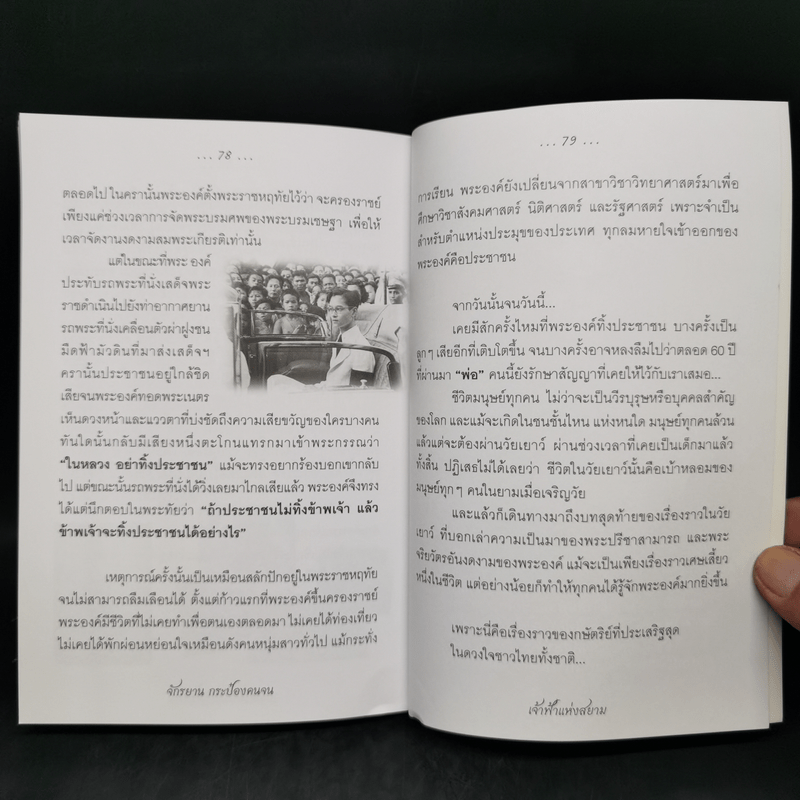 ... 78 ...
ตลอดไป ในครานั้นพระองค์ตั้งพระราชหฤทัยไว้ว่า จะครองราชย์
เพียงแค่ช่วงเวลาการจัดพระบรมศพของพระบรมเชษฐา เพื่อให้
เวลาจัดงานงดงามสมพระเกียรติเท่านั้น
แต่ในขณะที่พระ องค์
ประทับรถพระที่นั่งเสด็จพระ
ราชดำเนินไปยังท่าอากาศยาน
รถพระที่นั่งเคลื่อนตัวฝ่าฝูงชน
มืดฟ้ามัวดินที่มาส่งเสด็จฯ
ครานั้นประชาชนอยู่ใกล้ชิด
เสียจนพระองค์ทอดพระเนตร
เห็นดวงหน้าและแววตาที่บ่งชัดถึงความเสียขวัญของใครบางคน
ทันใดนั้นกลับมีเสียงหนึ่งตะโกนแทรกมาเข้าพระกรรณว่า
“ในหลวง อย่าทิ้งประชาชน” แม้จะทรงอยากร้องบอกเขากลับ
ไป แต่ขณะนั้นรถพระที่นั่งได้วิ่งเลยมาไกลเสียแล้ว พระองค์จึงทรง
ได้แต่นึกตอบในพระทัยว่า “ถ้าประชาชนไม่ทิ้งข้าพเจ้า แล้ว
ข้าพเจ้าจะทิ้งประชาชนได้อย่างไร”
เหตุการณ์ครั้งนั้นเป็นเหมือนสลักปักอยู่ในพระราชหฤทัย
จนไม่สามารถลืมเลือนได้ ตั้งแต่ก้าวแรกที่พระองค์ขึ้นครองราชย์
พระองค์มีชีวิตที่ไม่เคยทำเพื่อตนเองตลอดมา ไม่เคยได้ท่องเที่ยว
ไม่เคยได้พักผ่อนหย่อนใจเหมือนดังคนหนุ่มสาวทั่วไป แม้กระทั่ง
จักรยาน กระป๋องคนจน
... 79 ...
การเรียน พระองค์ยังเปลี่ยนจากสาขาวิชาวิทยาศาสตร์มาเพื่อ
ศึกษาวิชาสังคมศาสตร์ นิติศาสตร์ และรัฐศาสตร์ เพราะจำเป็น
สำหรับตำแหน่งประมุขของประเทศ ทุกลมหายใจเข้าออกของ
พระองค์คือประชาชน
จากวันนั้นจนวันนี้...
เคยมีสักครั้งไหมที่พระองค์ทิ้งประชาชน บางครั้งเป็น
ลูกๆ เสียอีกที่เติบโตขึ้น จนบางครั้งอาจหลงลืมไปว่าตลอด 60 ปี
ที่ผ่านมา “พ่อ” คนนี้ยังรักษาสัญญาที่เคยให้ไว้กับเราเสมอ...
ชีวิตมนุษย์ทุกคน ไม่ว่าจะเป็นวีรบุรุษหรือบุคคลสำคัญ
ของโลก และแม้จะเกิดในชนชั้นไหน แห่งหนใด มนุษย์ทุกคนล้วน
แล้วแต่จะต้องผ่านวัยเยาว์ ผ่านช่วงเวลาที่เคยเป็นเด็กมาแล้ว
ทั้งสิ้น ปฏิเสธไม่ได้เลยว่า ชีวิตในวัยเยาว์นั้นคือเบ้าหลอมของ
มนุษย์ทุกๆ คนในยามเมื่อเจริญวัย
และแล้วก็เดินทางมาถึงบทสุดท้ายของเรื่องราวในวัย
เยาว์ ที่บอกเล่าความเป็นมาของพระปรีชาสามารถ และพระ
จริยวัตรอันงดงามของพระองค์ แม้จะเป็นเพียงเรื่องราวเศษเสี้ยว
หนึ่งในชีวิต แต่อย่างน้อยก็ทำให้ทุกคนได้รู้จักพระองค์มากยิ่งขึ้น
เพราะนี่คือเรื่องราวของกษัตริย์ที่ประเสริฐสุด
ในดวงใจชาวไทยทั้งชาติ...
เจ้าฟ้าแห่งสยาม